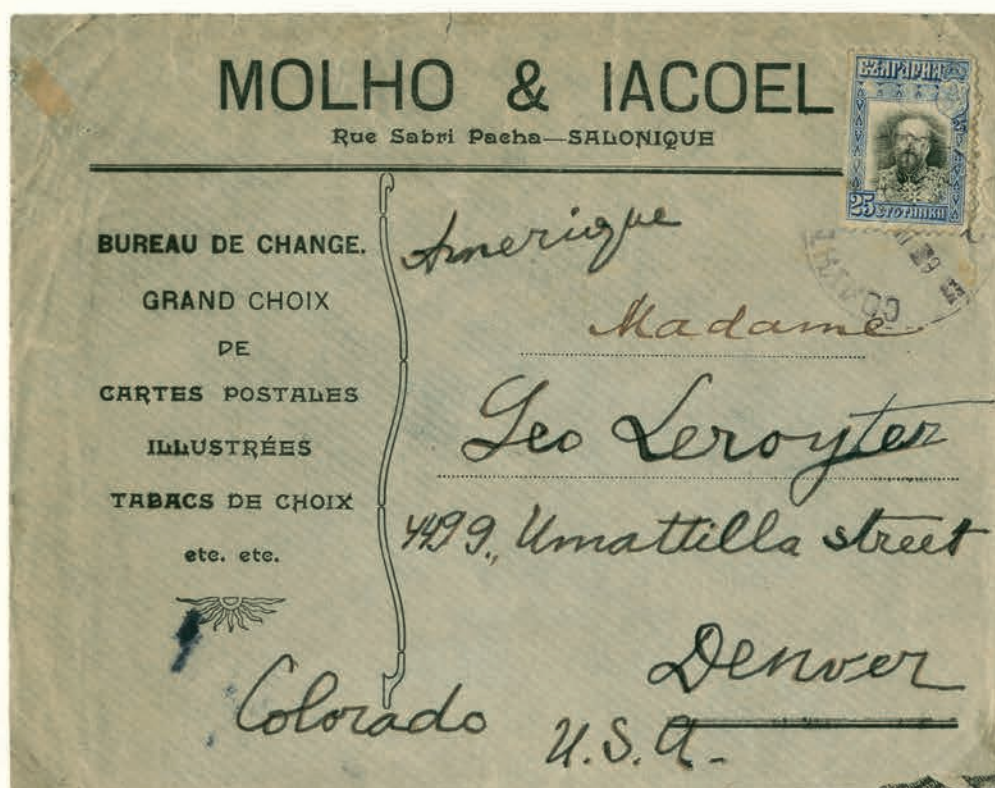 MOLHO & IACOEL
Rue Sabri Pacha—SALONIQUE
БЪЛГАРИЯ
25 СТОТИНКИ
BUREAU DE CHANGE.
GRAND CHOIX
DE
CARTES POSTALES
ILLUSTRÉES
TABACS DE CHOIX
etc. etc.
Amerique
Madame
Geo Leroyter
4499., Umattilla street
Denver
Colorado
U.S.A.-